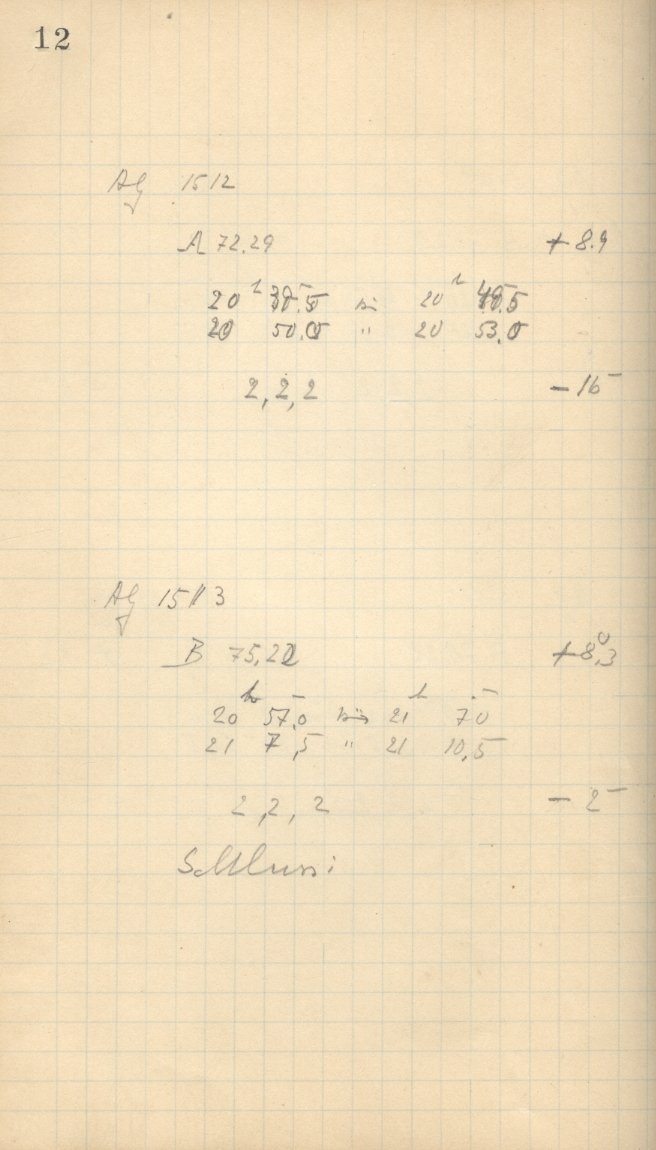 12
AG 1512
A 72.29 +8.9
20 h 38.5 bis 20 h 48.5
20 50.0 " 20 53.0
2, 2, 2 - 16 m
AG 1513
B 75,22 +8,3
20 h 57,0 bis 21 h 7 0
21 7,5 " 21 10,5
2, 2, 2 - 2 m
Schluss: